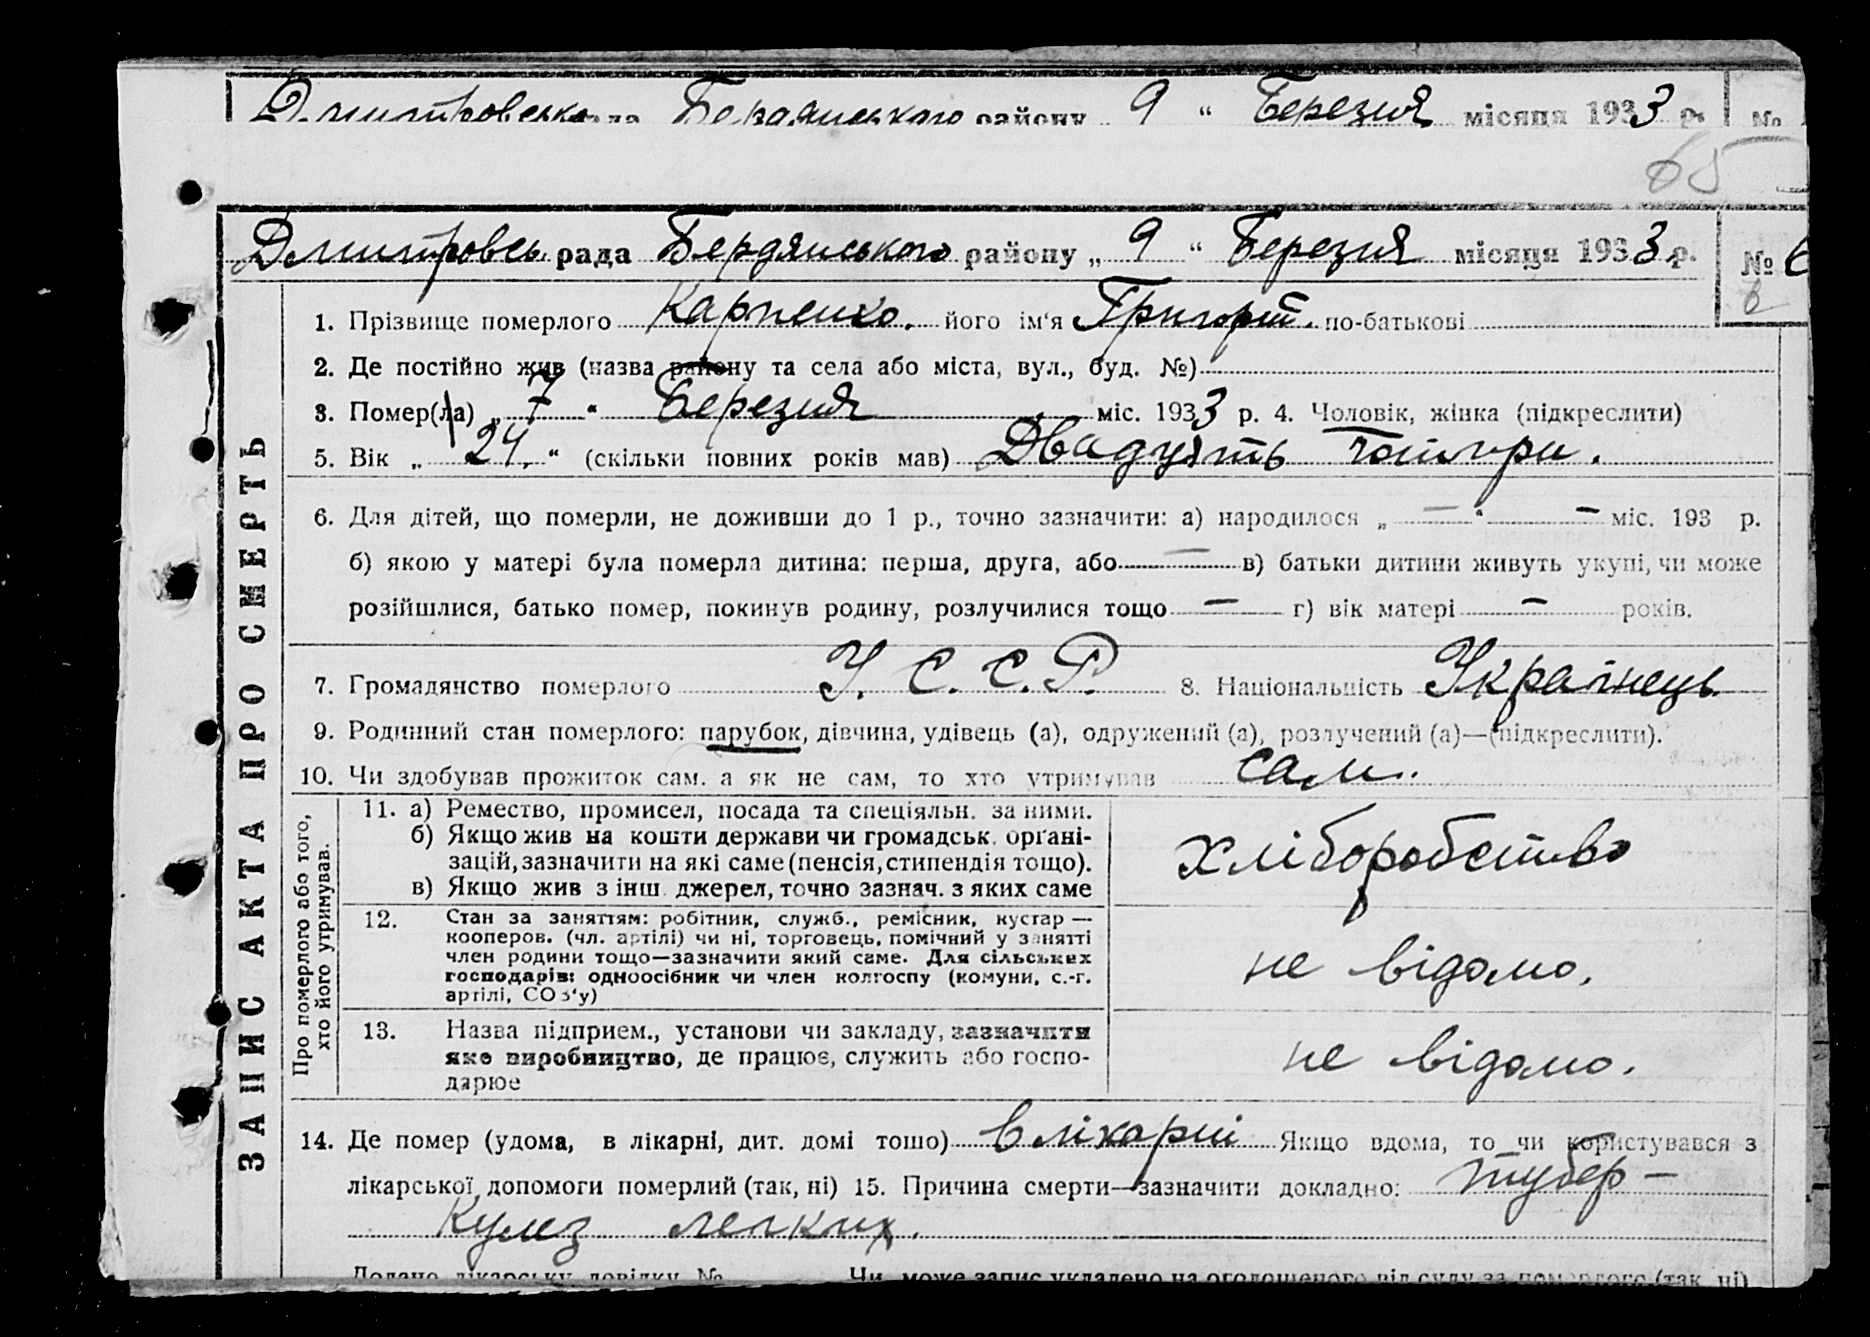 Дмитровська рада Бердянського району „ 9 “ Березня місяця 1933 р. №
65
Дмитровсь. рада Бердянського району „ 9 “ Березня місяця 1933 р. № 6
1. Прізвище померлого Карпенко. його ім‘я Григорій. по-батькові
2. Де постійно жив (назва району та села або міста, вул., буд. №)
3. Помер(ла) „ 7 “ Березня міс. 1933 р. 4. Чоловік, жінка (підкреслити)
5. Вік „ 24. “ (скільки повних років мав) Двадцять чотири.
6. Для дітей, що померли, не доживши до 1 р., точно зазначити: а) народилося „ — “ — міс. 193 р.
б) якою у матері була померла дитина: перша, друга, або — в) батьки дитини живуть укупі, чи може
розійшлися, батько помер, покинув родину, розлучилися тощо — г) вік матері — років.
7. Громадянство померлого У. С. С. Р. 8. Національність Українець
9. Родинний стан померлого: парубок, дівчина, удівець (а), одружений (а), розлучений (а)—(підкреслити).
10. Чи здобував прожиток сам. а як не сам, то хто утримував сам.
ЗАПИС АКТА ПРО СМЕРТЬ
Про померлого або того,
хто його утримував.
11. а) Ремество, промисел, посада та спеціяльн. за ними.
б) Якщо жив на кошти держави чи громадськ. органі-
зацій, зазначити на які саме (пенсія, стипендія тощо).
в) Якщо жив з інш. джерел, точно зазнач. з яких саме
хліборобство
12. Стан за заняттям: робітник, служб., ремісник, кустар —
кооперов. (чл. артілі) чи ні, торговець, помічний у занятті
член родини тощо—зазначити який саме. Для сільських
господарів: одноосібник чи член колгоспу (комуни, с.-г.
артілі, СОз‘у)
не відомо.
13. Назва підприєм., установи чи закладу, зазначити
яке виробництво, де працює, служить або госпо-
дарює
не відомо.
14. Де помер (удома, в лікарні, дит. домі тощо) в лікарні Якщо вдома, то чи користувався з
лікарської допомоги померлий (так, ні) 15. Причина смерти—зазначити докладно: тубер-
кулез легких.
Додано лікарську довідку № Чи може запис укладено на оголошеного від суду за померлого (так, ні)